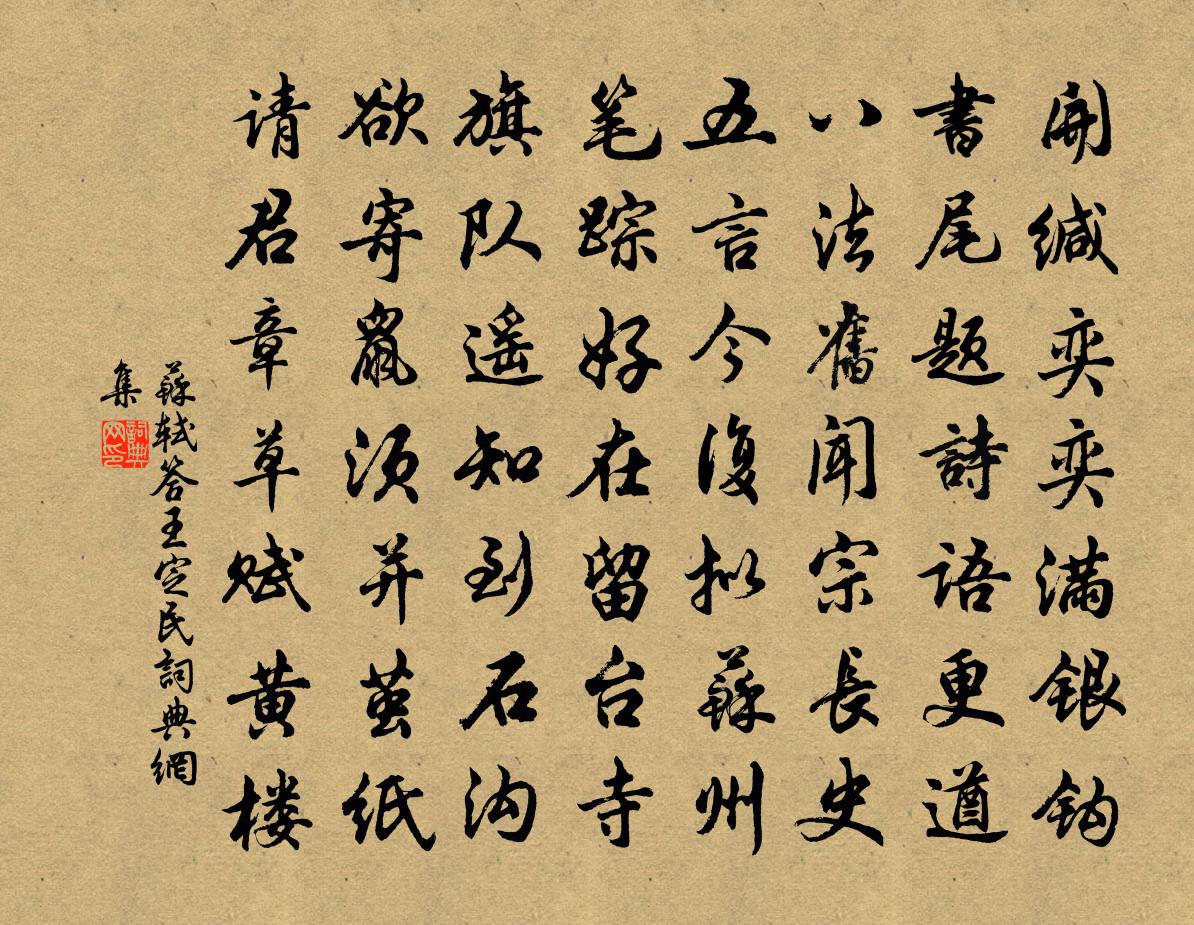 開缄奕奕满银钩
書尾题詩語更遒
八法舊闻宗長史
五言今復拟蘇州
笔踪好在留台寺
旗队遥知到石沟
欲寄鼠须并茧纸
请君章草赋黄楼
蘇轼答王定民詞典網
集
詞典网印